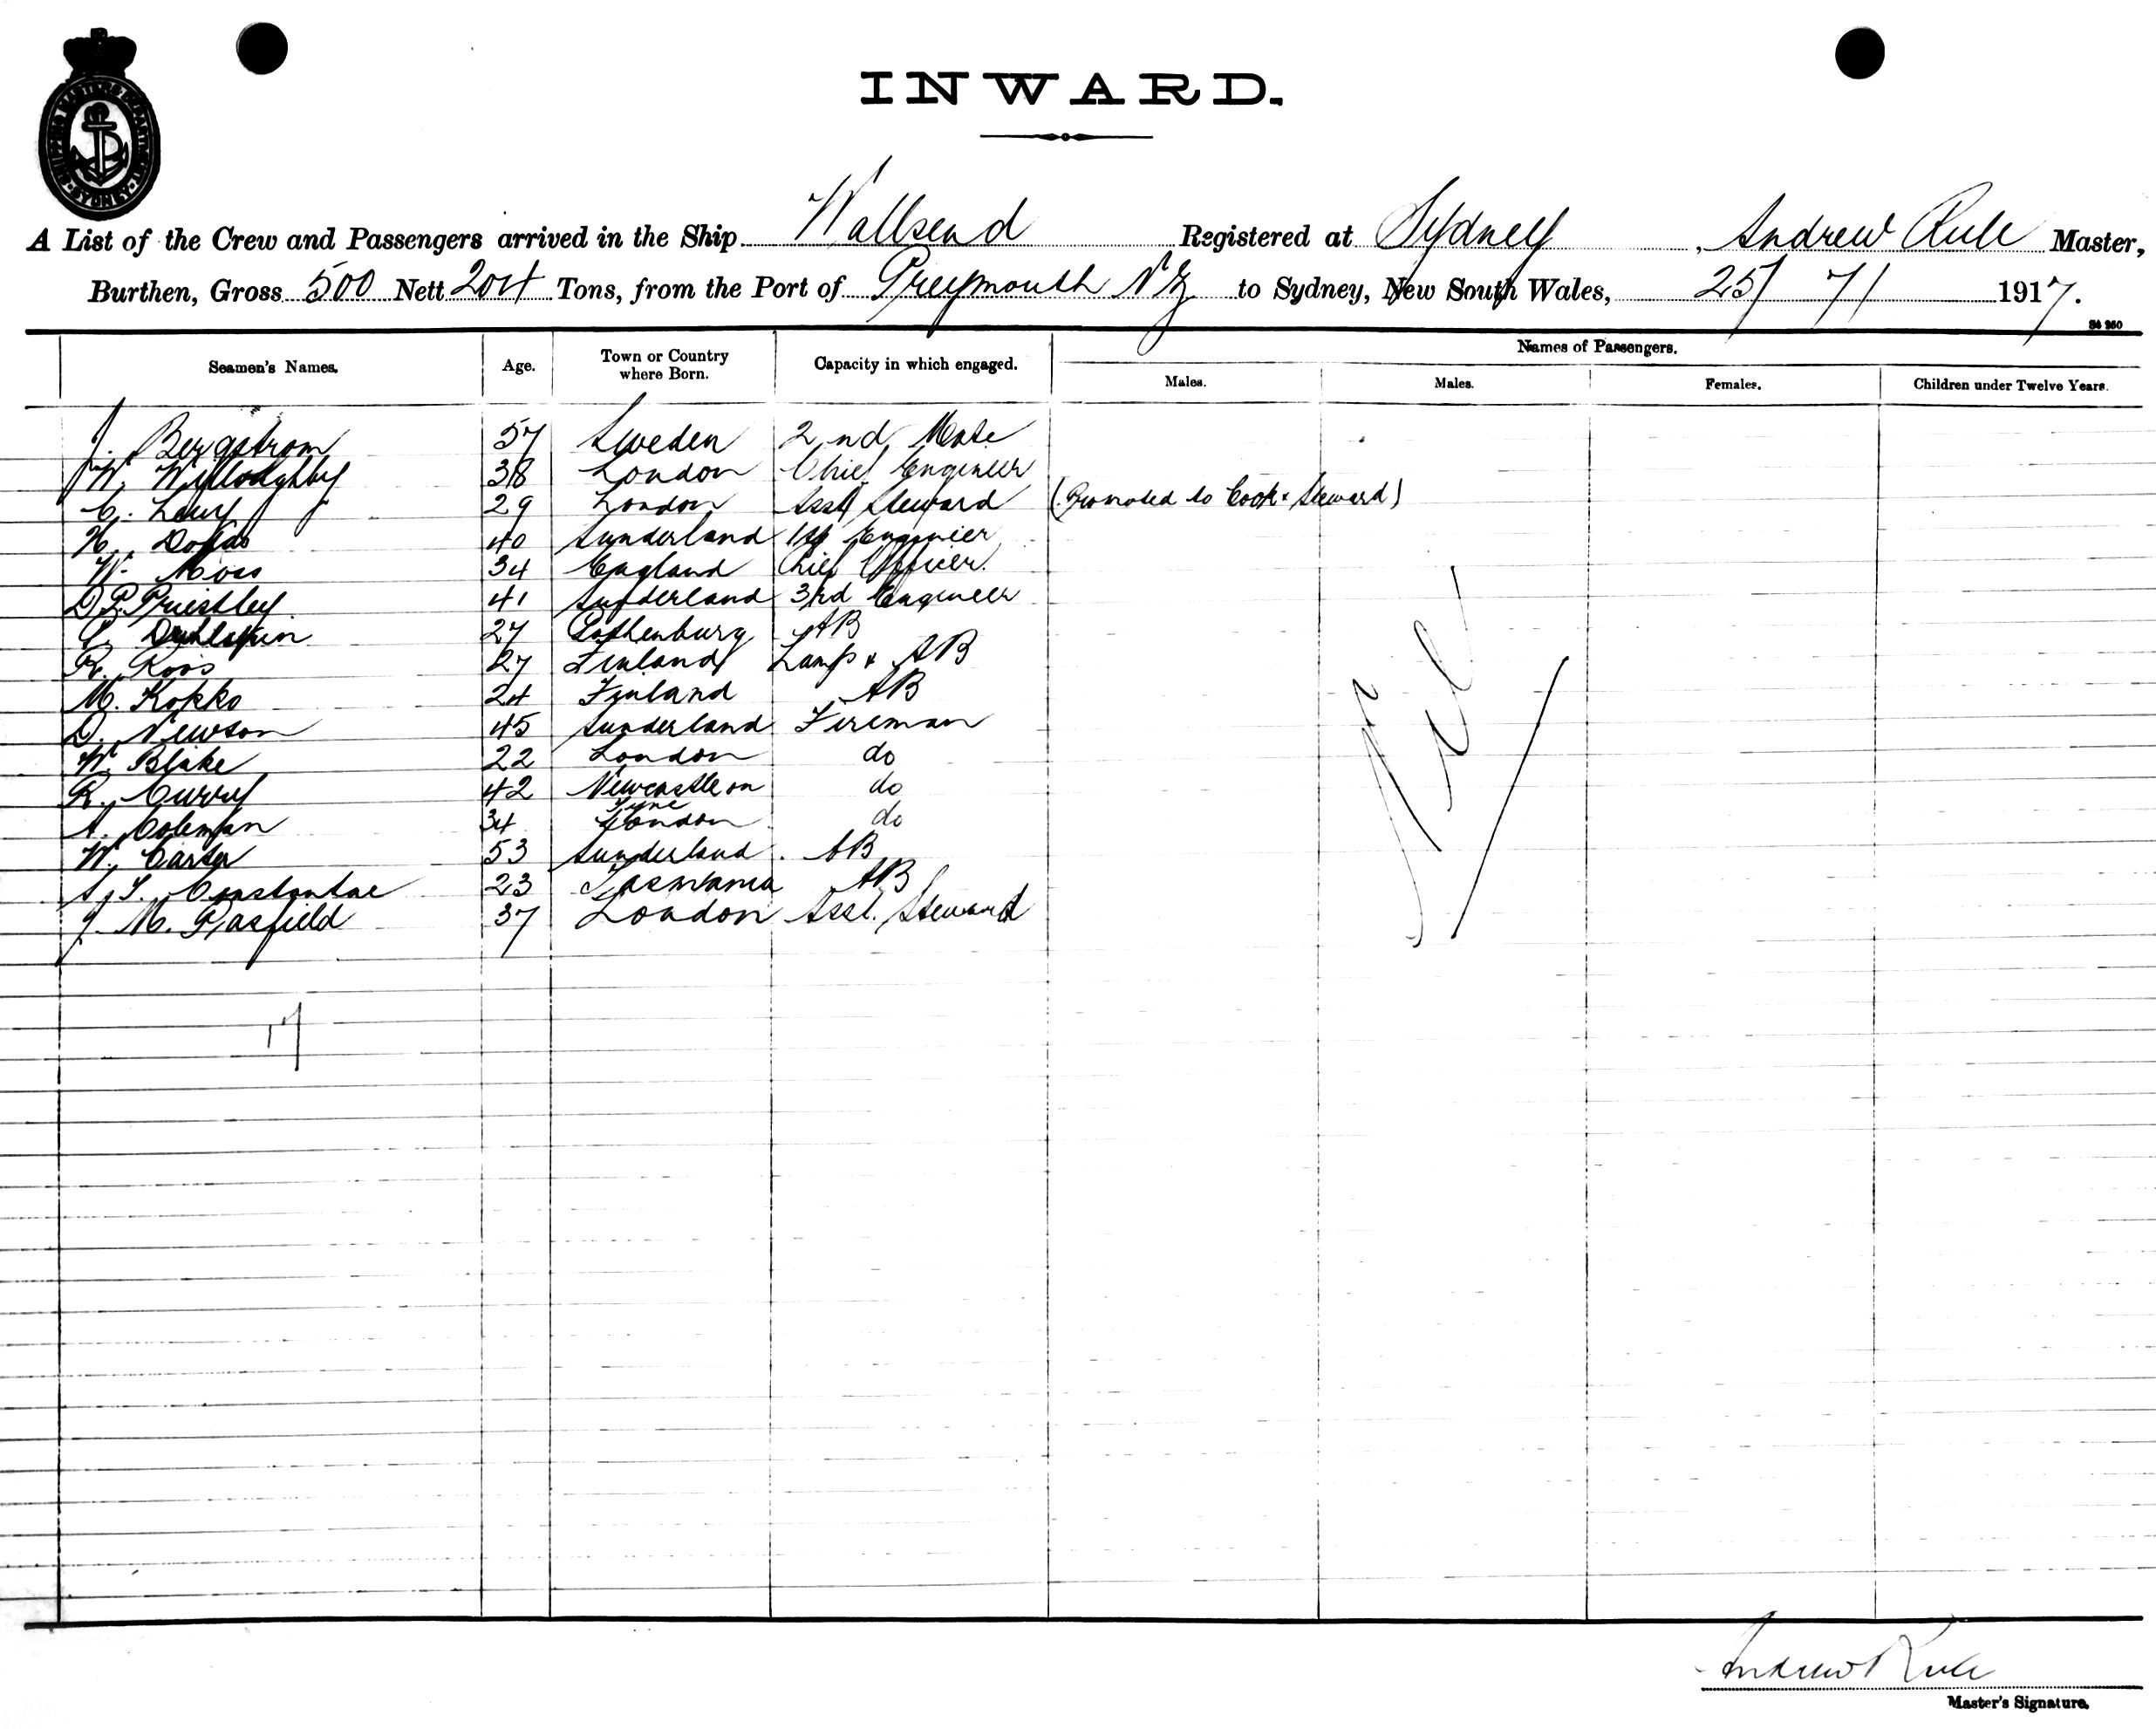 SHIPPING MASTERS DEPARTMENT SYDNEY
INWARD.
A List of the Crew and Passengers arrived in the Ship Wallsend Registered at Sydney, Andrew Rule Master,
Burthen, Gross 500 Nett 204 Tons, from the Port of Greymouth NZ to Sydney, New South Wales, 25/ 7/ 1917.
Names of Passengers.
Seamen's Names. Age. Town or Country where Born. Capacity in which engaged. Males. Males. Females. Children under Twelve Years.
J. Bergstrom 57 Sweden 2nd Mate
W. Willoughby 38 London Chief Engineer
C. Levy 29 London Asst Steward (Promoted to Cook & Steward)
40 Sunderland 1st Engineer
W. Moss 34 England Chief Officer.
D. P. Priestley 41 Sunderland 3rd Engineer
C. 27 Gothenburg AB
R. Roos 27 Finland Lamps & AB
M. Kokko 24 Finland AB
D. Newson 45 Sunderland Fireman
W. Blake 22 London do
R. Curry 42 Newcastle on Tyne do
A. Coleman 34 London do
W. Carter 53 Sunderland AB
23 Tasmania AB
J. M. 37 London Asst. Steward
Nil
17
Andrew Rule
Master's Signature.